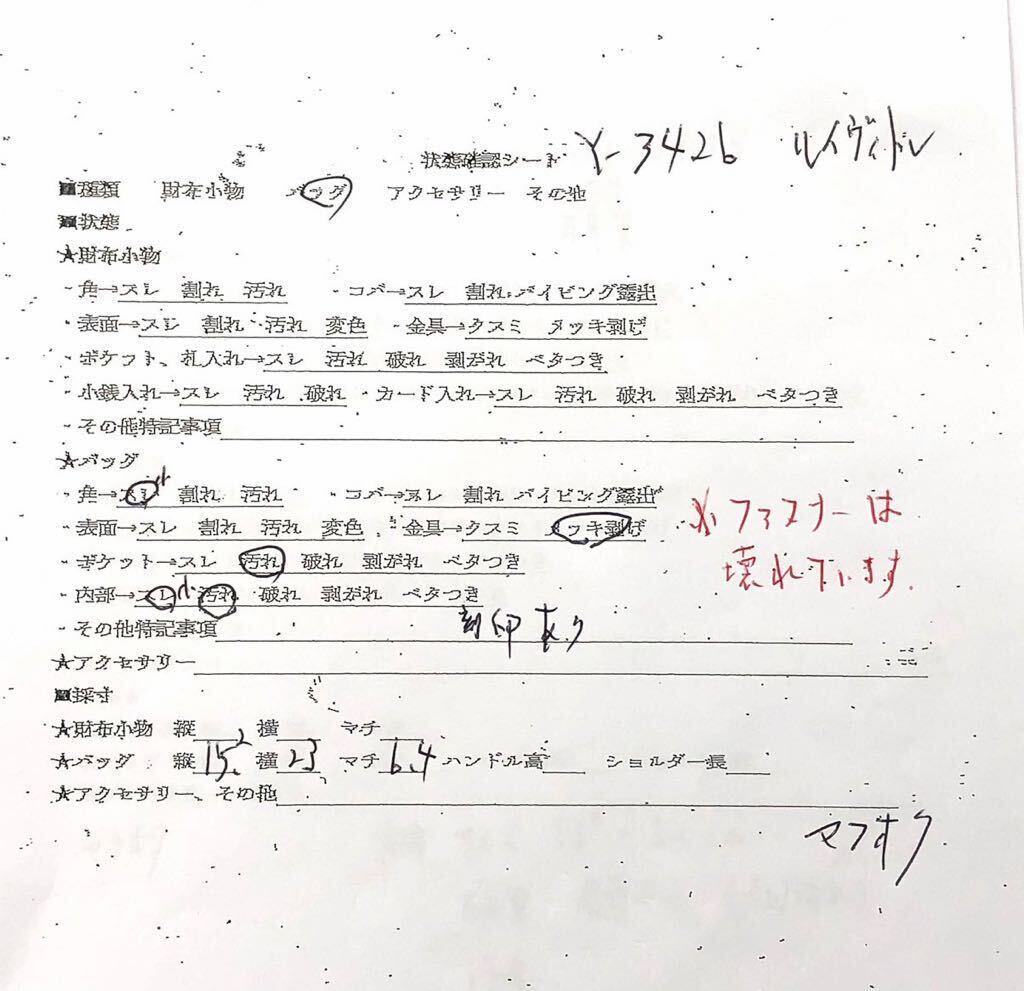 状態確認シート Y-3426 ルイヴィトン
■種類 財布小物 バッグ アクセサリー その他
■状態
★財布小物
・角→スレ 割れ 汚れ ・コバ→スレ 割れ パイピング露出
・表面→スレ 割れ 汚れ 変色 ・金具→クスミ メッキ剥げ
・ポケット、札入れ→スレ 汚れ 破れ 剥がれ ベタつき
・小銭入れ→スレ 汚れ 破れ ・カード入れ→スレ 汚れ 破れ 剥がれ ベタつき
・その他特記事項
★バッグ
・角→スレ小 割れ 汚れ ・コバ→スレ 割れ パイピング露出
・表面→スレ 割れ 汚れ 変色 ・金具→クスミ メッキ剥げ
※ファスナーは
壊れています.
・ポケット→スレ 汚れ 破れ 剥がれ ベタつき
・内部→スレ小 汚れ 破れ 剥がれ ベタつき
・その他特記事項 刻印あり
★アクセサリー
■採寸
★財布小物 縦 横 マチ
★バッグ 縦15.2 横23 マチ6.4 ハンドル高 ショルダー長
★アクセサリー、その他
ヤフオク